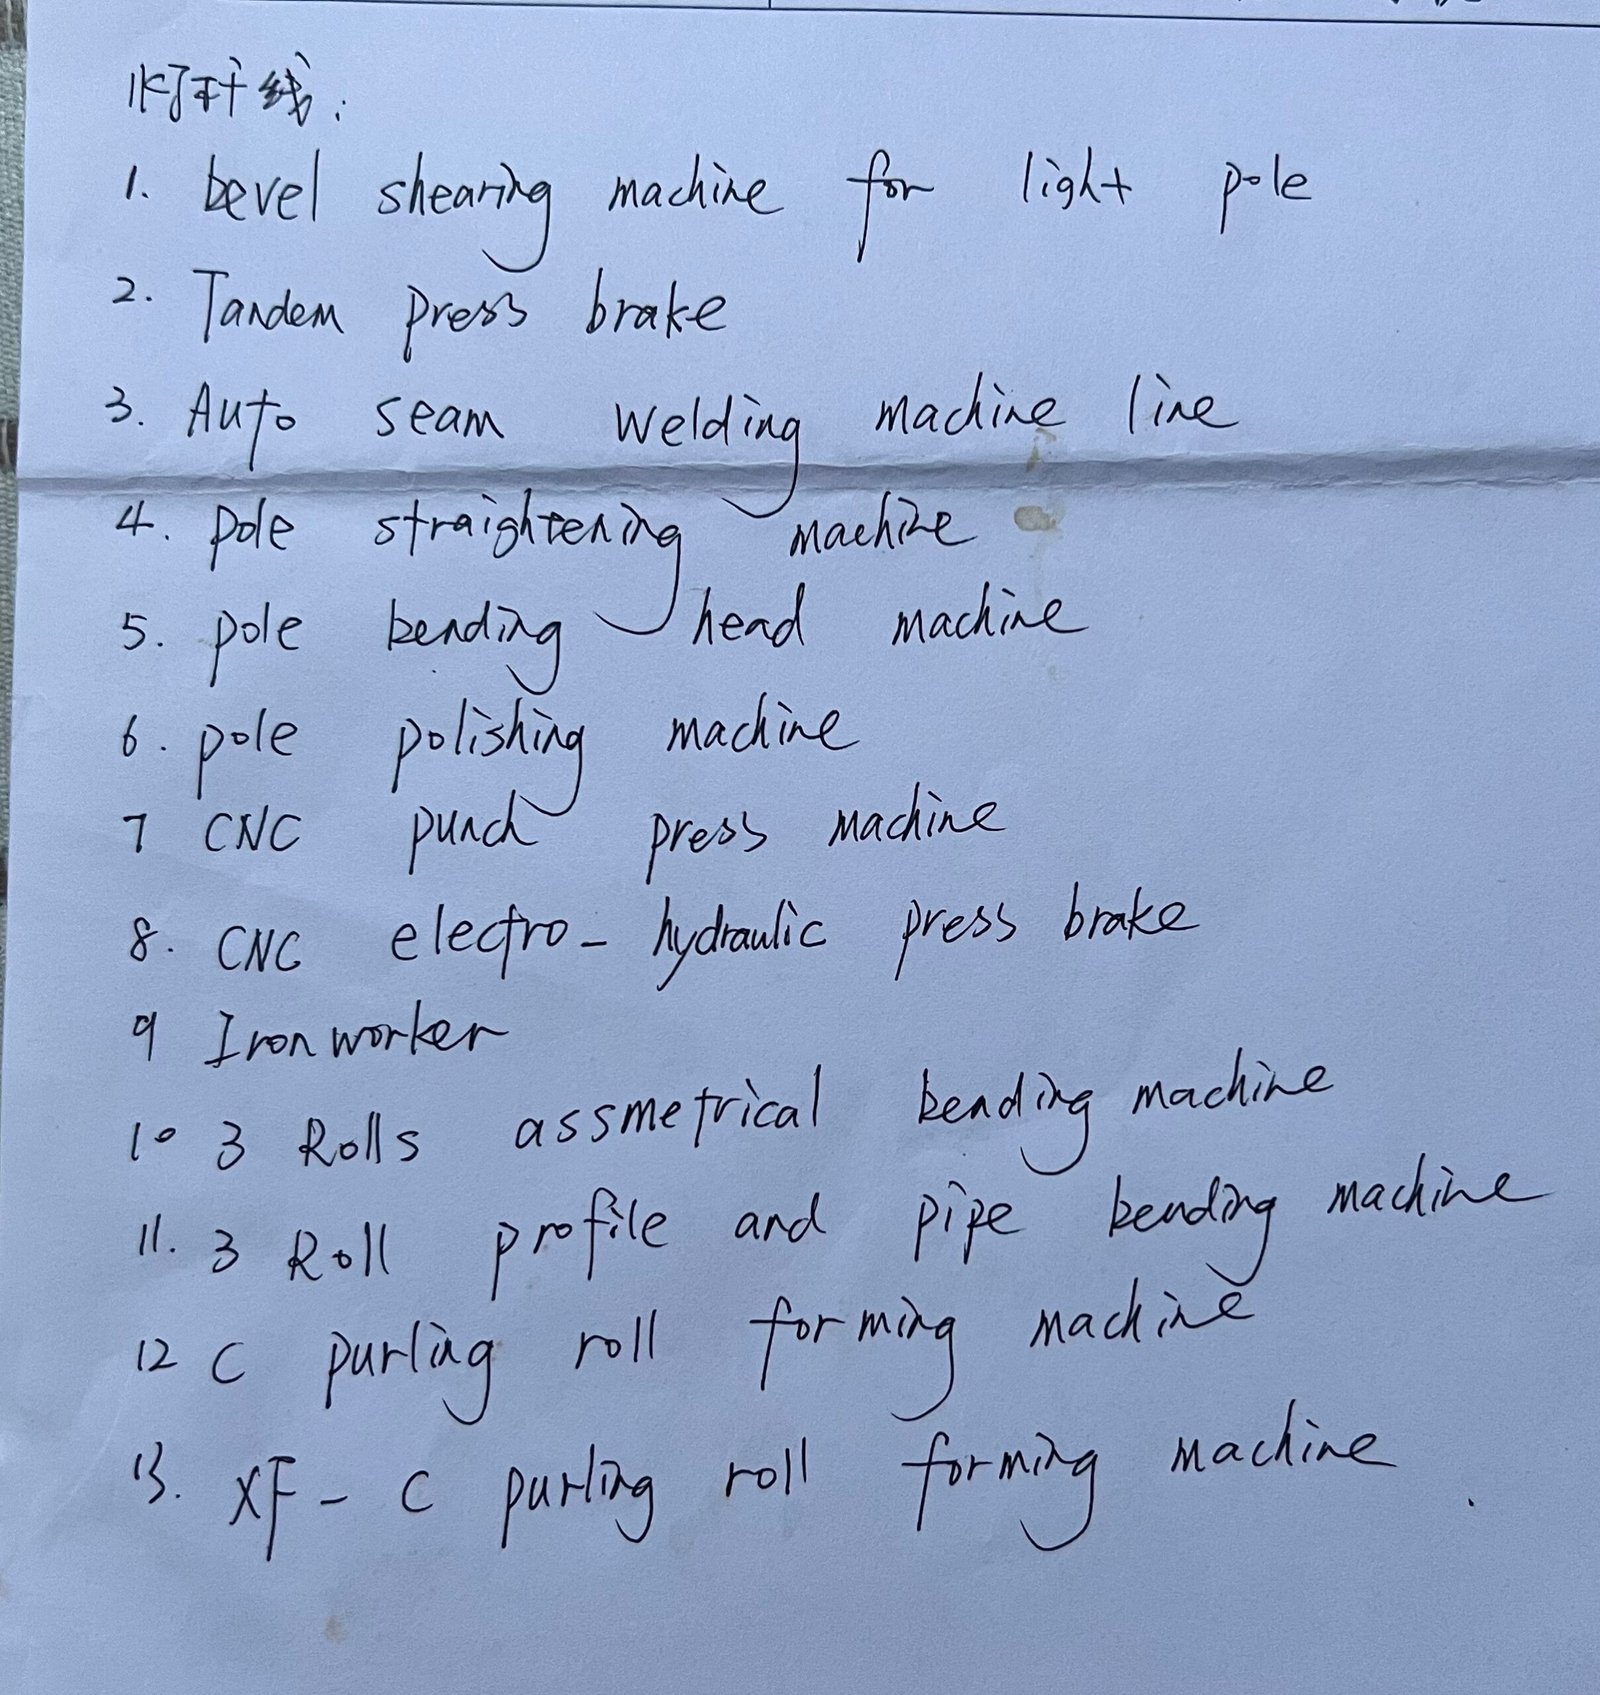 灯杆线:
1. bevel shearing machine for light pole
2. Tandem press brake
3. Auto seam welding machine line
4. pole straightening machine
5. pole bending head machine
6. pole polishing machine
7 CNC punch press machine
8. CNC electro-hydraulic press brake
9 Iron worker
10 3 Rolls assmetrical bending machine
11. 3 Roll profile and pipe bending machine
12 C purling roll forming machine
13. XF-C purling roll forming machine